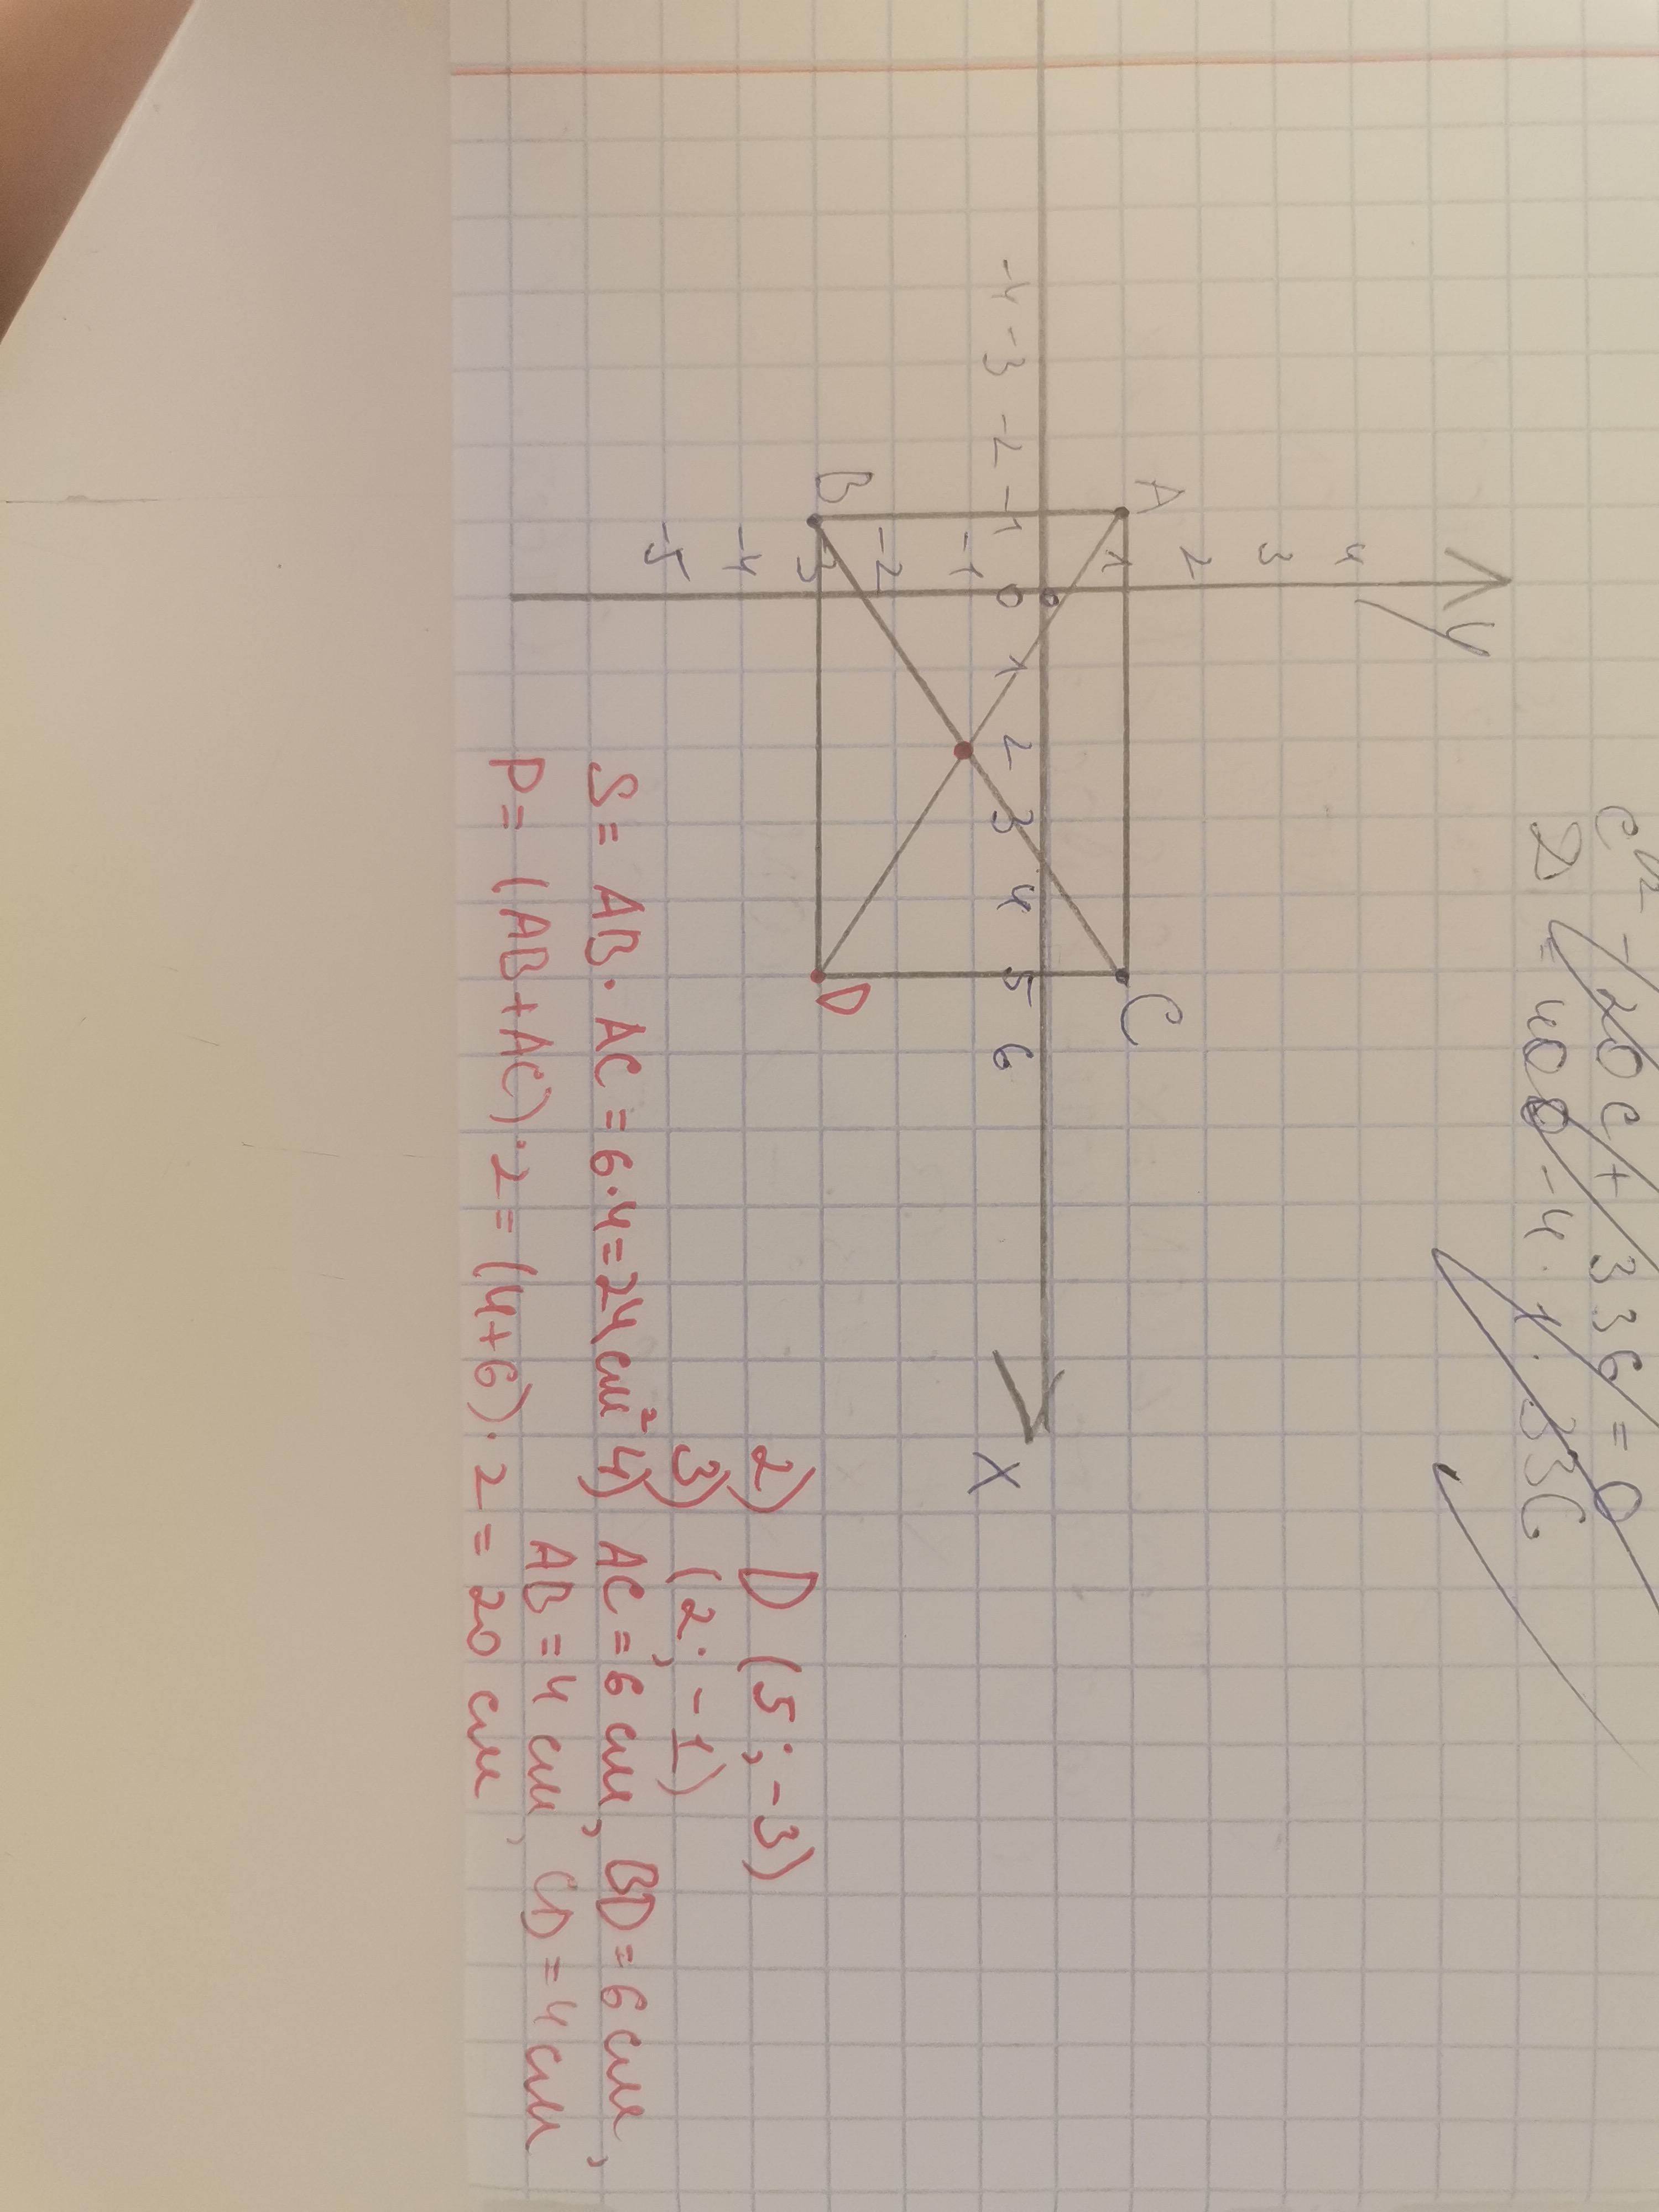 c² - 20c + 336 = 0
D = 400 - 4 · 1 · 336
y
4
3
2
A
1
C
-4 -3 -2 -1 0 1 2 3 4 5 6
x
-1
-2
B
3
D
-4
-5
2) D (5; -3)
3) (2; -1)
S = AB · AC = 6 · 4 = 24 см² 4) AC = 6 см, BD = 6 см,
AB = 4 см, CD = 4 см
P = (AB + AC) · 2 = (4 + 6) · 2 = 20 см,